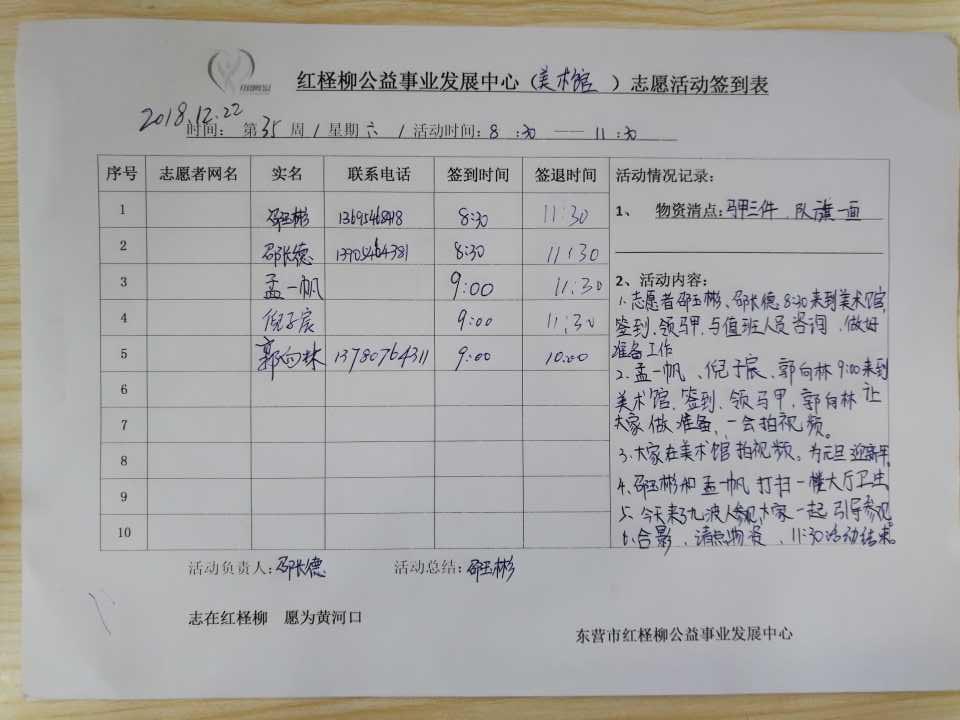 红柽柳公益事业发展中心（美术馆）志愿活动签到表
2018.12.22
时间：第35周/星期六/活动时间：8:30——11:30
序号 志愿者网名 实名 联系电话 签到时间 签退时间 活动情况记录：
1 邵玉彬 8:30 11:30
1、物资清点：马甲三件、队旗一面
2 邵长德 13905464381 8:30 11:30
2、活动内容：
3 孟一帆 9:00 11:30
1.志愿者邵玉彬、邵长德8:30来到美术馆,
4 倪子宸 9:00 11:30
签到、领马甲、与值班人员咨询、做好
5 郭向林 13780764311 9:00 10:00
准备工作
6
2.孟一帆、倪子宸、郭向林9:00来到
7
美术馆、签到、领马甲、郭向林让
大家做准备、一会拍视频。
8
3.大家在美术馆拍视频。为元旦迎新年,
9
4.邵玉彬和孟一帆打扫一楼大厅卫生
5.今天来了九波人参观,大家一起引导参观。
10
6.合影、清点物资、11:30活动结束。
活动负责人：邵长德 活动总结：邵玉彬
志在红柽柳 愿为黄河口
东营市红柽柳公益事业发展中心